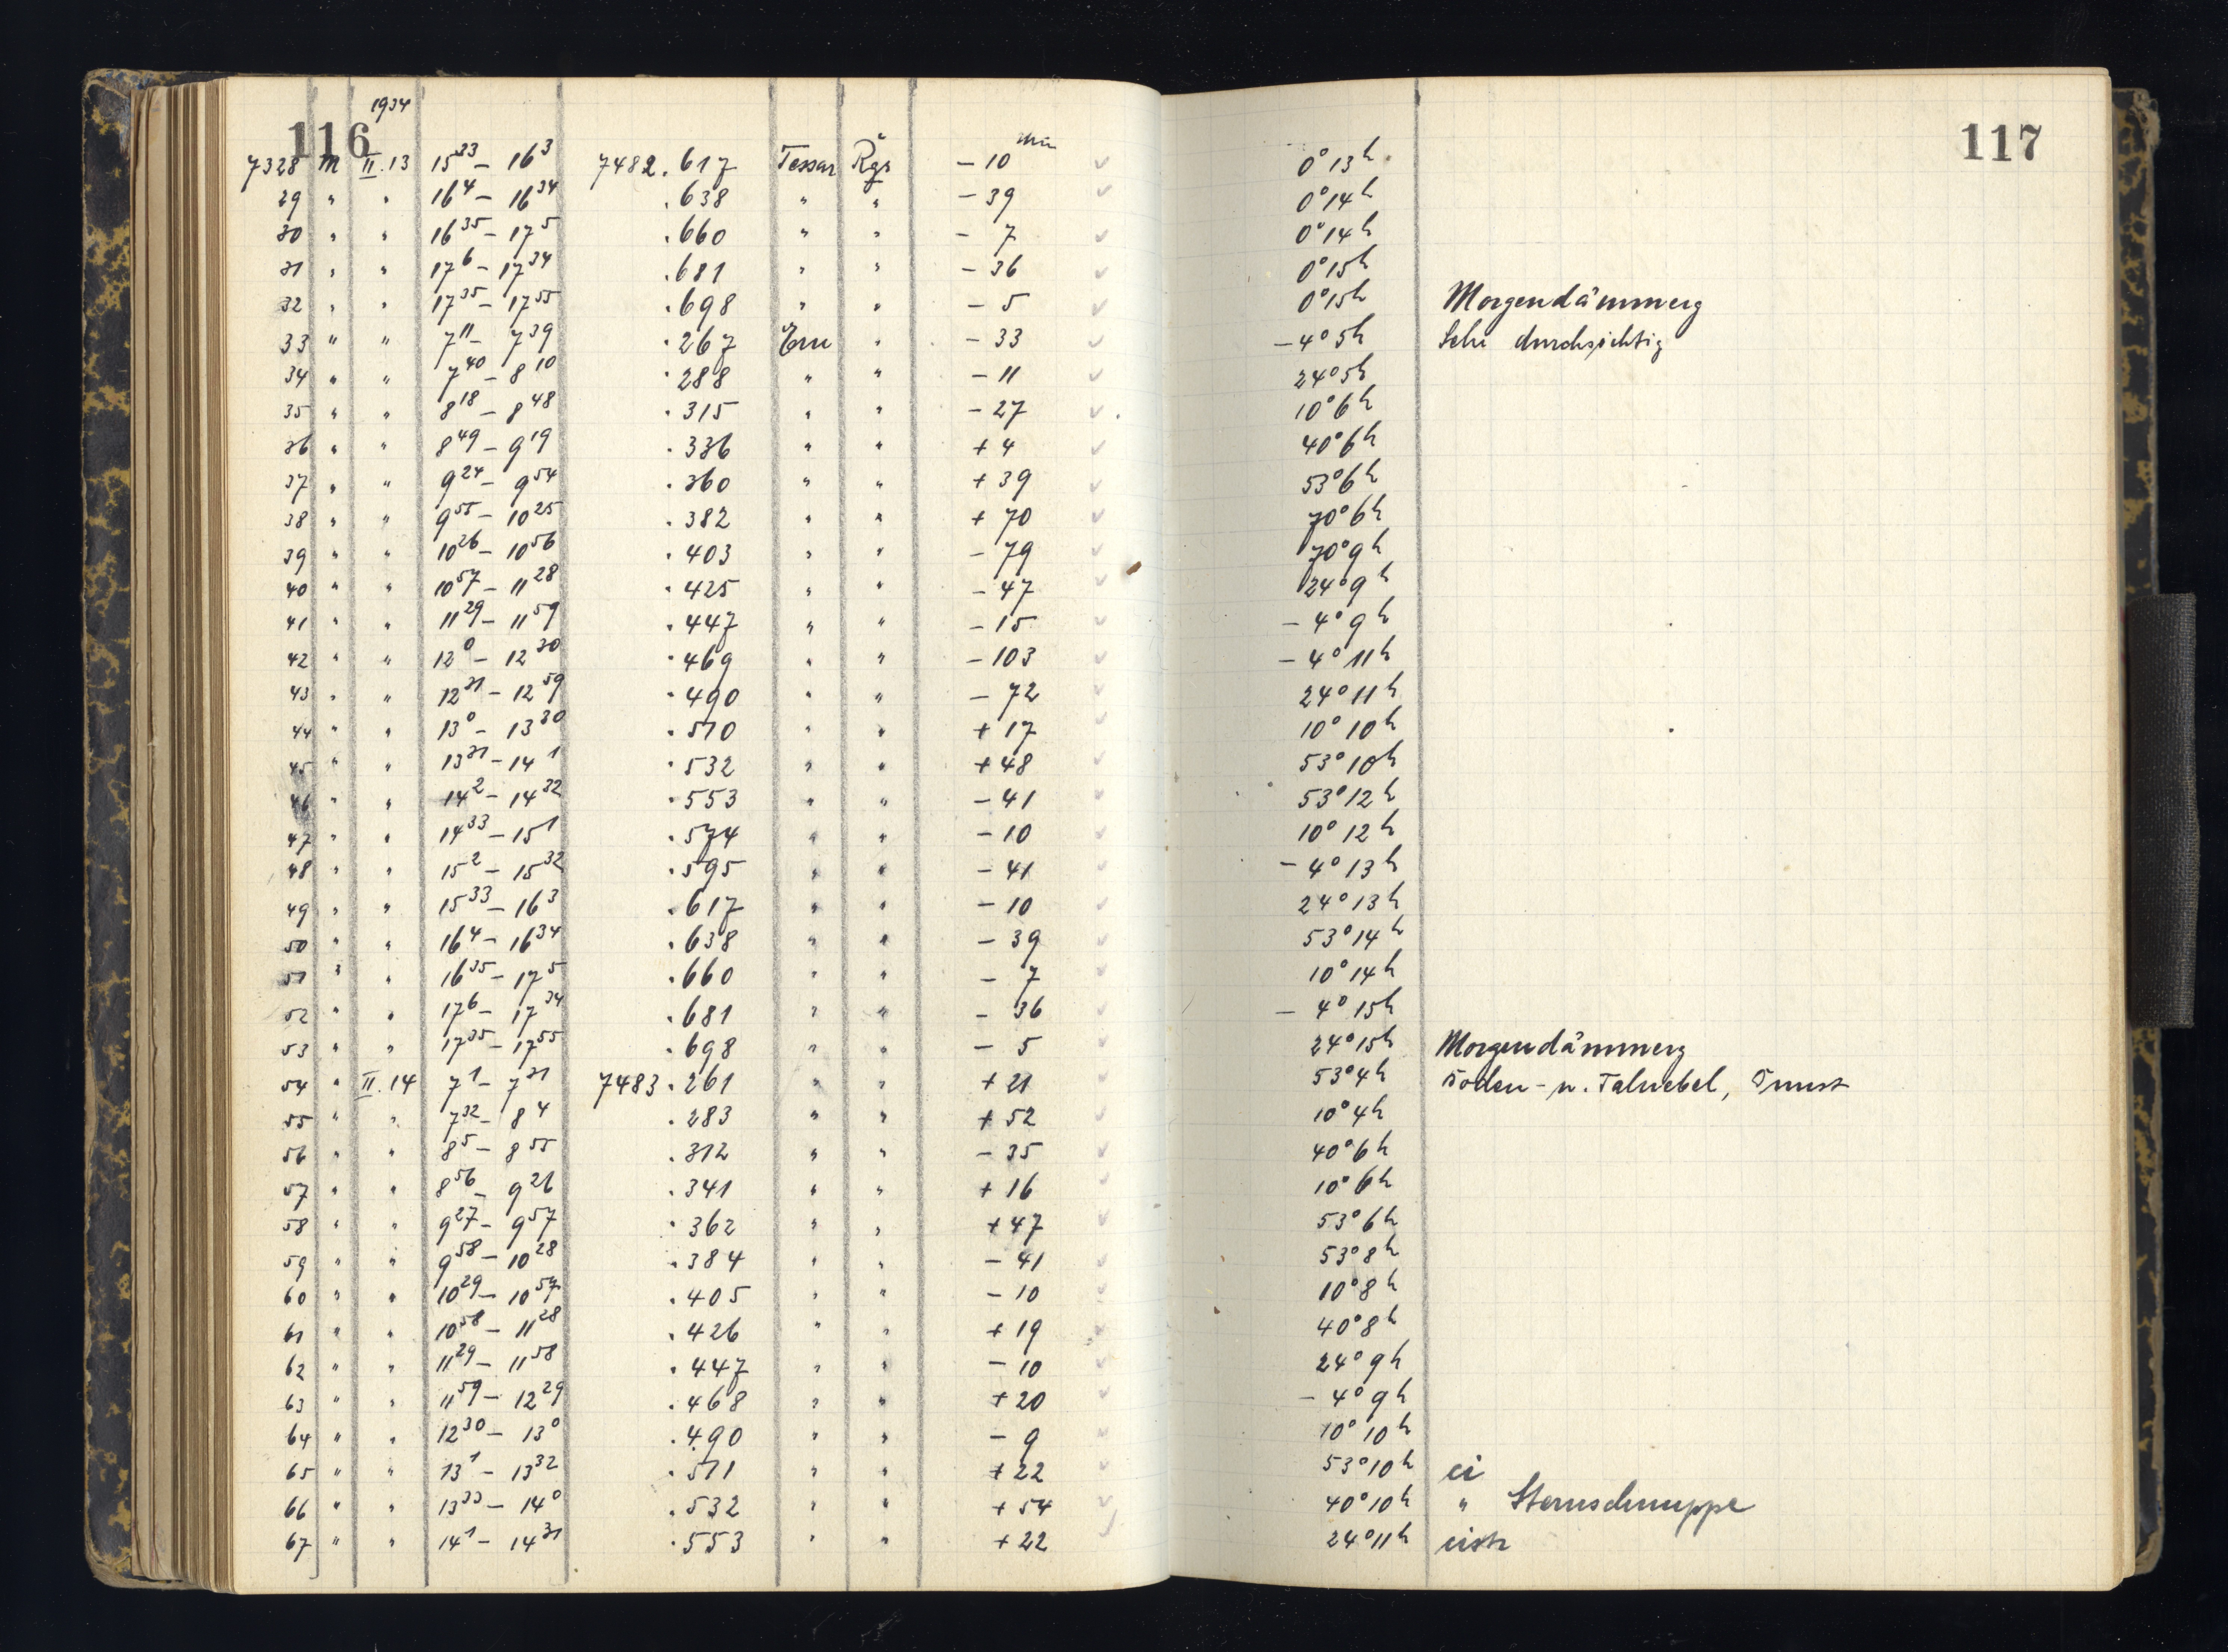 116 1934 117
7328 M II.13 15³³ – 16³ 7482.617 Tessar Rgr – 10 min 0° 13h
29 " " 16⁴ – 16³⁴ .638 " " – 39 0° 14h
30 " " 16³⁵ – 17⁵ .660 " " – 7 0° 14h
31 " " 17⁶ – 17³⁴ .681 " " – 36 0° 15h
32 " " 17³⁵ – 17⁵⁵ .698 " " – 5 0° 15h Morgendämmerg
33 " " 7¹¹ – 7³⁹ .267 Ern " – 33 – 4° 5h Sehr durchsichtig
34 " " 7⁴⁰ – 8¹⁰ .288 " " – 11 24° 5h
35 " " 8¹⁸ – 8⁴⁸ .315 " " – 27 10° 6h
36 " " 8⁴⁹ – 9¹⁹ .336 " " + 4 40° 6h
37 " " 9²⁴ – 9⁵⁴ .360 " " + 39 53° 6h
38 " " 9⁵⁵ – 10²⁵ .382 " " + 70 70° 6h
39 " " 10²⁶ – 10⁵⁶ .403 " " – 79 70° 9h
40 " " 10⁵⁷ – 11²⁸ .425 " " – 47 24° 9h
41 " " 11²⁹ – 11⁵⁹ .447 " " – 15 – 4° 9h
42 " " 12⁰ – 12³⁰ .469 " " – 103 – 4° 11h
43 " " 12³¹ – 12⁵⁹ .490 " " – 72 24° 11h
44 " " 13⁰ – 13³⁰ .510 " " + 17 10° 10h
45 " " 13³¹ – 14¹ .532 " " + 48 53° 10h
46 " " 14² – 14³² .553 " " – 41 53° 12h
47 " " 14³³ – 15¹ .574 " " – 10 10° 12h
48 " " 15² – 15³² .595 " " – 41 – 4° 13h
49 " " 15³³ – 16³ .617 " " – 10 24° 13h
50 " " 16⁴ – 16³⁴ .638 " " – 39 53° 14h
51 " " 16³⁵ – 17⁵ .660 " " – 7 10° 14h
52 " " 17⁶ – 17³⁴ .681 " " – 36 – 4° 15h
53 " " 17³⁵ – 17⁵⁵ .698 " " – 5 24° 15h Morgendämmerg
54 " II.14 7¹ – 7³¹ 7483.261 " " + 21 53° 4h Boden- u. Talnebel, Dunst
55 " " 7³² – 8⁴ .283 " " + 52 10° 4h
56 " " 8⁵ – 8⁵⁵ .312 " " – 35 40° 6h
57 " " 8⁵⁶ – 9²⁶ .341 " " + 16 10° 6h
58 " " 9²⁷ – 9⁵⁷ .362 " " + 47 53° 6h
59 " " 9⁵⁸ – 10²⁸ .384 " " – 41 53° 8h
60 " " 10²⁹ – 10⁵⁷ .405 " " – 10 10° 8h
61 " " 10⁵⁸ – 11²⁸ .426 " " + 19 40° 8h
62 " " 11²⁹ – 11⁵⁸ .447 " " – 10 24° 9h
63 " " 11⁵⁹ – 12²⁹ .468 " " + 20 – 4° 9h
64 " " 12³⁰ – 13⁰ .490 " " – 9 10° 10h
65 " " 13¹ – 13³² .511 " " + 22 53° 10h ci
66 " " 13³³ – 14⁰ .532 " " + 54 40° 10h " Sternschnuppe
67 " " 14¹ – 14³¹ .553 " " + 22 24° 11h